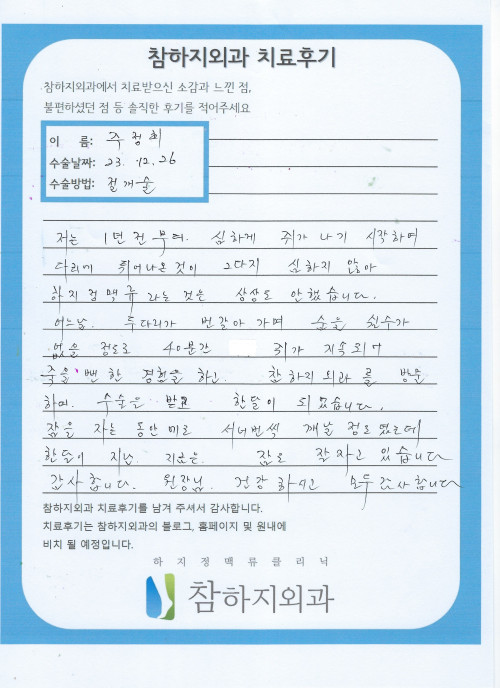 참하지외과 치료후기
참하지외과에서 치료받으신 소감과 느낀 점,
불편하셨던 점 등 솔직한 후기를 적어주세요
이 름: 주정희
수술날짜: 23. 12. 26
수술방법: 절개술
저는 1년 전 부여. 심하게 쥐가 나기 시작하여
다리에 튀어나온것이 그다지 심하지 않아
하지정맥류 라는 것은 상상도 안했습니다.
어느날. 두다리가 번갈아 가며 숨을 쉴수가
없을 정도로 40분간 쥐가 지속되어
죽을뻔 한 경험을 하고. 참하지외과를 방문
하여. 수술을 받고 한달이 되었습니다.
잠을 자는 동안에도 서너번씩 깨날 정도였는데
한달이 지난 지금은. 잠도 잘 자고 있습니다
감사합니다. 원장님. 건강하시고 모두 감사합니다
참하지외과 치료후기를 남겨 주셔서 감사합니다.
치료후기는 참하지외과의 블로그, 홈페이지 및 원내에
비치 될 예정입니다.
하지정맥류클리닉
참하지외과